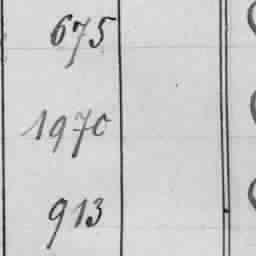 675
1970
913